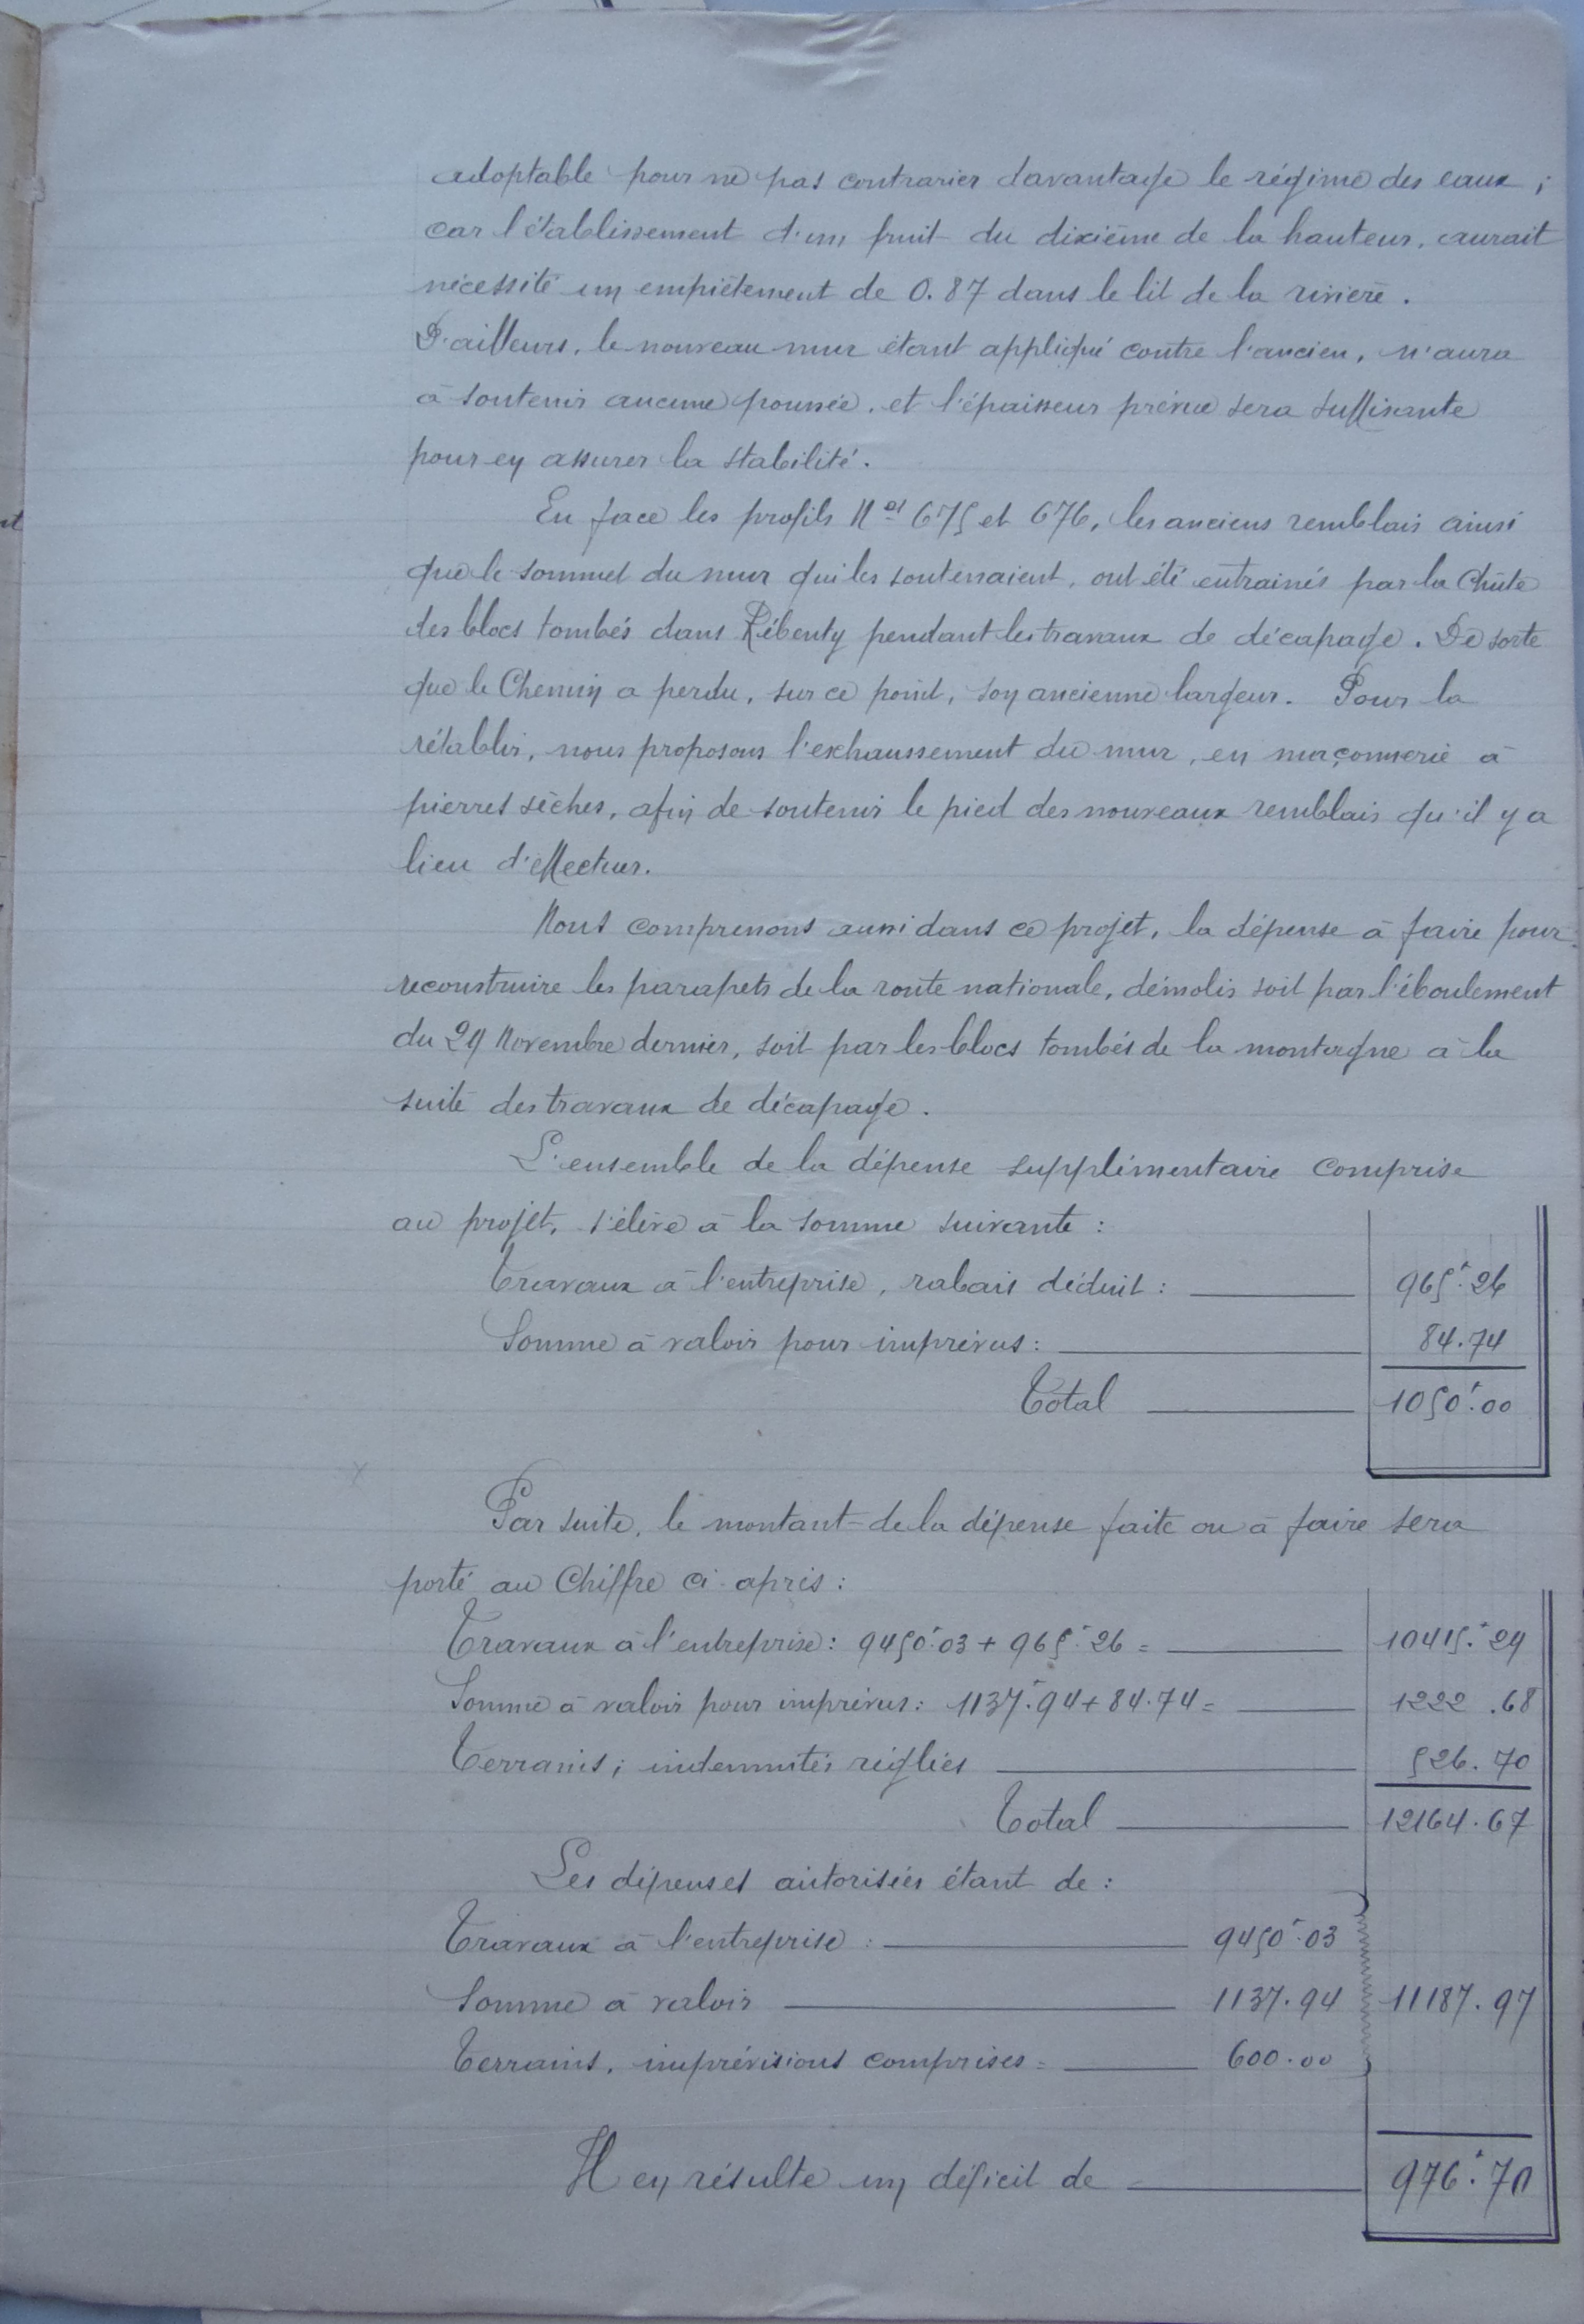 adoptable pour ne pas contrarier davantage le régime des eaux ;
car l'établissement d'un fruit du dixième de la hauteur, aurait
nécessité un empiètement de 0.87 dans le lit de la rivière.
D'ailleurs, le nouveau mur étant appliqué contre l'ancien, n'aura
à soutenir aucune poussée, et l'épaisseur prévue sera suffisante
pour en assurer la stabilité.
En face les profils Nos 675 et 676, les anciens remblais ainsi
que le sommet du mur qui les soutenaient, ont été entrainés par la chûte
des blocs tombés dans Rébenty pendant les travaux de décapage. De sorte
que le Chemin a perdu, sur ce point, son ancienne largeur. Pour la
rétablir, nous proposons l'exhaussement du mur, en maçonnerie à
pierres sèches, afin de soutenir le pied des nouveaux remblais qu'il y a
lieu d'effectuer.
Nous comprenons aussi dans ce projet, la dépense à faire pour
reconstruire les parapets de la route nationale, démolis soit par l'éboulement
du 29 Novembre dernier, soit par les blocs tombés de la montagne à la
suite des travaux de décapage.
L'ensemble de la dépense supplémentaire comprise
au projet, s'élève à la somme suivante :
Travaux à l'entreprise, rabais déduit : 965f.26
Somme à valoir pour imprévus : 84.74
Total 1050f.00
Par suite, le montant de la dépense faite ou à faire sera
porté au Chiffre ci-après :
Travaux à l'entreprise : 9450f.03 + 965f.26 = 10415f.29
Somme à valoir pour imprévus : 1137f.94 + 84.74 = 1222.68
Terrains ; indemnités réglées 526.70
Total 12164.67
Les dépenses autorisées étant de :
Travaux à l'entreprise : 9450f.03
Somme à valoir 1137.94 11187.97
Terrains, imprévisions comprises = 600.00
Il en résulte un déficit de 976f.70